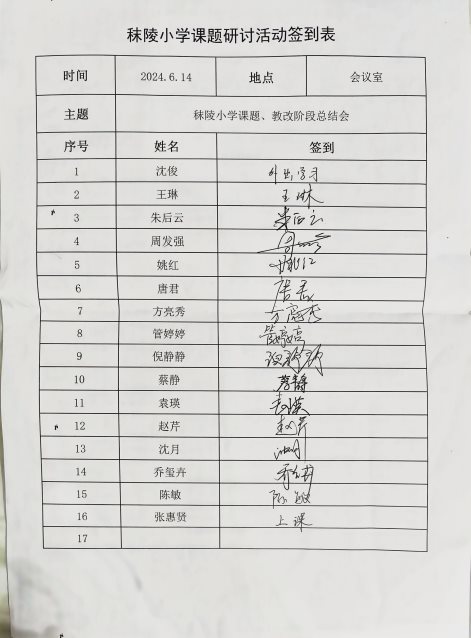 秣陵小学课题研讨活动签到表
时间 2024.6.14 地点 会议室
主题 秣陵小学课题、教改阶段总结会
序号 姓名 签到
1 沈俊 外出学习
2 王琳 王琳
3 朱后云 朱后云
4 周发强
5 姚红 姚红
6 唐君 唐君
7 方亮秀 方亮秀
8 管婷婷 管婷婷
9 倪静静 倪静静
10 蔡静 蔡静
11 袁瑛 袁瑛
12 赵芹 赵芹
13 沈月 沈月
14 乔玺卉 乔玺卉
15 陈敏 陈敏
16 张惠贤 上课
17